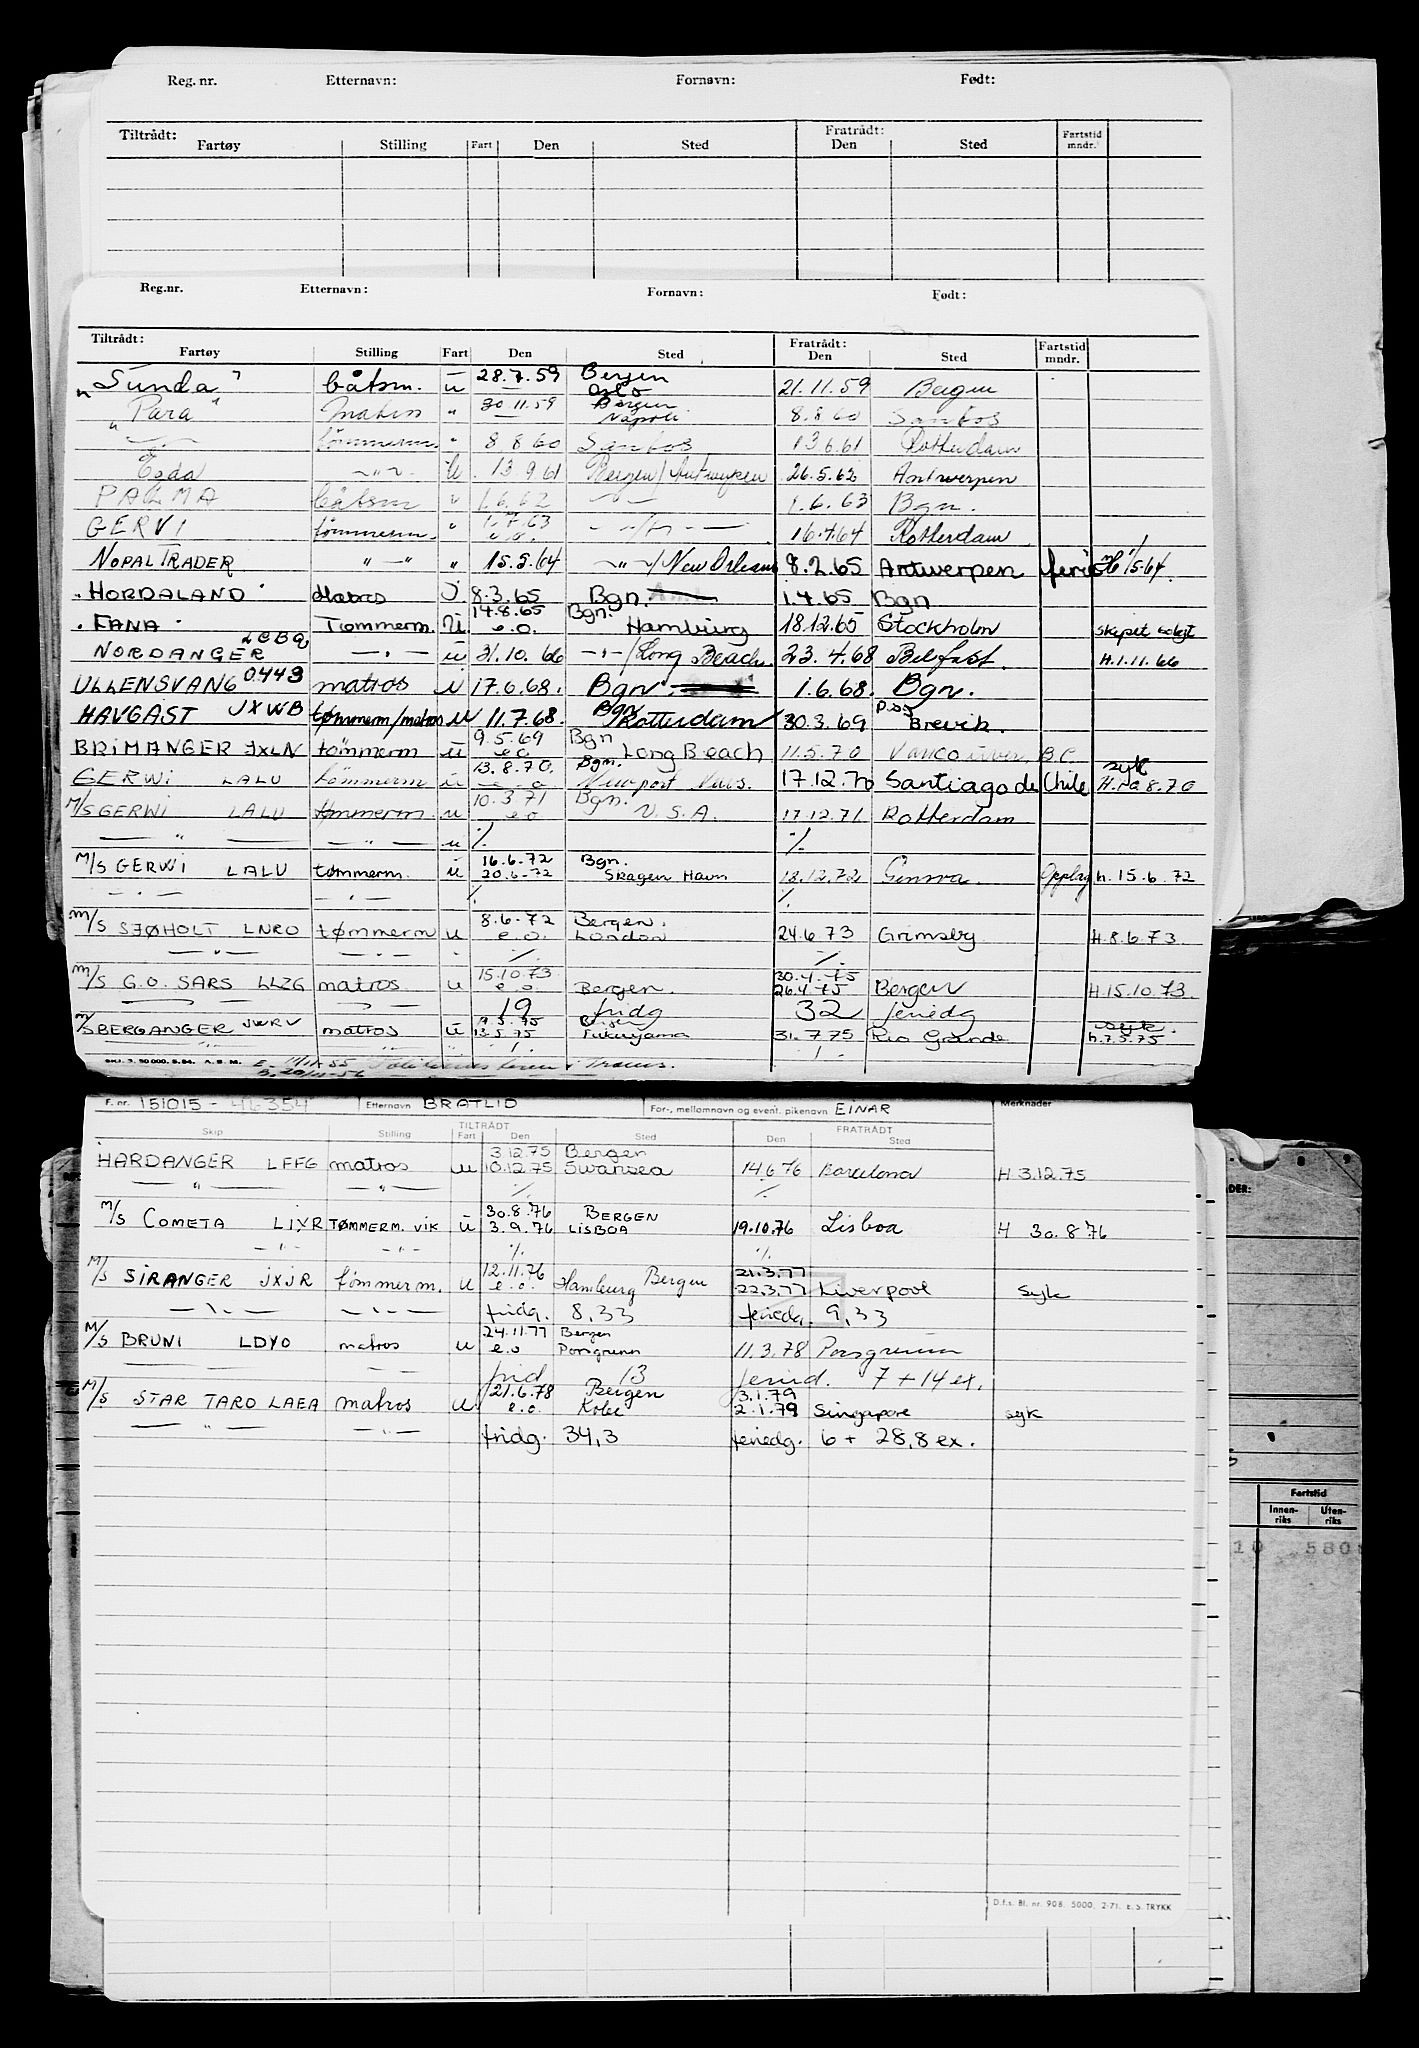 Reg. nr. Etternavn: Fornavn: Født:
Tiltrådt: Fratrådt:
Fartøy Stilling Fart Den Sted Den Sted Fartstid mndr.
Reg.nr. Etternavn: Fornavn: Født:
Tiltrådt: Fratrådt:
Fartøy Stilling Fart Den Sted Den Sted Fartstid mndr.
"Sunda" båtsm. u 28.7.59 Bergen Oslo 21.11.59 Bergen
"Para" Matros " 30.11.59 Bergen Napoli 8.8.60 Santos
— " — tömmerm. " 8 8 60 Santos 13.6.61 Rotterdam
Togo u. 13.9.61 Bergen/Antwerpen 26.5.62 Antwerpen
PALMA båtsm " 1.6.62 — " — 1.6.63 Bgn.
GERVI tömmerm. " 1.7.63 — " — 16.4.64 Rotterdam
NOPAL TRADER — " — " 15.5.64 — " —/New Orleans 8.2.65 Antwerpen ferie H 1/5-64.
"HORDALAND" Matros J. 8.3.65 Bgn. 1.4.65 Bgn
"FANA" Tømmerm. u. 14.8.65 e.o. Bgn. Hamburg 18.12.65 Stockholm skipet solgt
NORDANGER LCBQ — " — u 31.10.66 — " —/Long Beach 23.4.68 Belfast. H.1.11.66
ULLENSVANG 0443 matros u 17.6.68. Bgn 1.6.68. Bgn.
HAVGAST JXWB tømmerm/matros u 11.7.68. Bgn Rotterdam 30.3.69 Brevik.
BRIMANGER JXLN tømmerm u 9.5.69 e.o Bgn Long Beach 11.5.70 Vancouver, B.C.
GERWI LALU tömmerm u 13.8.70. e.o Bgn. Newport News. 17.12.70 Santiago de Chile syk H.12.8.70
M/S GERWI LALU tømmerm. u 10.3.71 e.o Bgn. U.S.A. 17.12.71 Rotterdam
— " — — " — u % %
M/S GERWI LALU tømmerm. u 16.6.72 20.6.72 Bgn. Skagen Havn 18.12.72 Genova. Opplag h.15.6.72
— " — — " — % %
M/S SJØHOLT LNRO tømmerm u 8.6.72 e.o. Bergen. London 24.6.73 Grimsby H.8.6.73.
— " — — " — % %
M/S G.O. SARS LLZG matros. u 15.10.73 e.o. Bergen. 30.4.75 26.4.75 Bergen H.15.10.73.
— " — — " — 19 fridg 32 feriedg
M/S BERGANGER JWRV matros u 19.5.75 13.5.75 Bergen Fukuyama 31.7.75 Rio Grande syk. h.7.5.75
SKJ. 3. 50 000. 5.54. A. B. M.
F. nr. 151015 - 42354 Etternavn BRATLID For-, mellomnavn og event. pikenavn EINAR Merknader
TILTRÅDT FRATRÅDT
Skip Stilling Fart Den Sted Den Sted
HARDANGER LFFG matros u 3.12.75 10.12.75 Bergen Swansea 14.6.76 Barcelona H 3.12.75
— " — — " — % %
M/S COMETA LIXR TØMMERM. VIK u 30.8.76 3.9.76 BERGEN LISBOA 19.10.76 Lisboa H 30.8 76
— " — — " — % %
M/S SIRANGER JXJR tømmerm. u 12.11.76 e.o. Hamburg Bergen 21.3.77 22.3.77 Liverpool Syk
— " — — " — fridg. 8,33 feriedg. 9,33
M/S BRUNI LDYO matros u 24.11.77 e.o Bergen Porsgrunn 11.3.78 Porsgrunn
— — frid 13 feried. 7 + 14 ex.
M/S STAR TARO LAEA matros u 21.6.78 e.o. Bergen Kobe 3.1.79 2.1.79 Singapore syk
— " — — " — fridg. 34,3 feriedg. 6 + 28,8 ex.
D.f.s. Bl. nr. 908. 5000. 2-71. E. S. TRYKK
DER:
Fartstid
Innen-riks Uten-riks
10 580